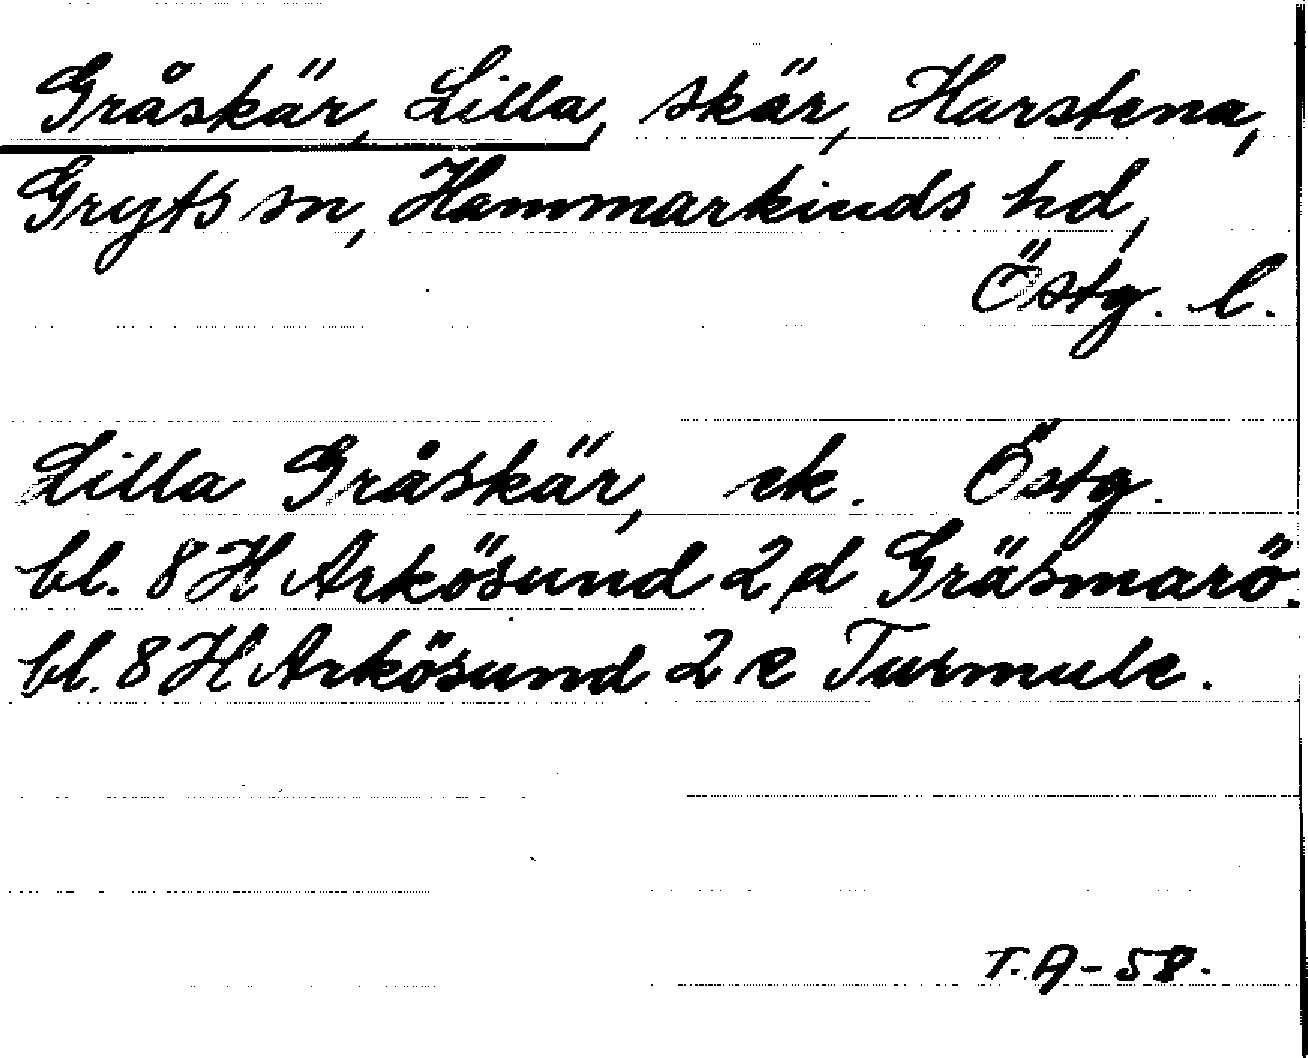 Gråskär, Lilla, skär, Harstena,
Gryts sn, Hammarkinds hd,
Östg. l.
Lilla Gråskär, ek. Östg.
bl. 8 H Arkösund 2 d Gräsmarö.
bl. 8 H Arkösund 2 e Turmule.
T.A-58.